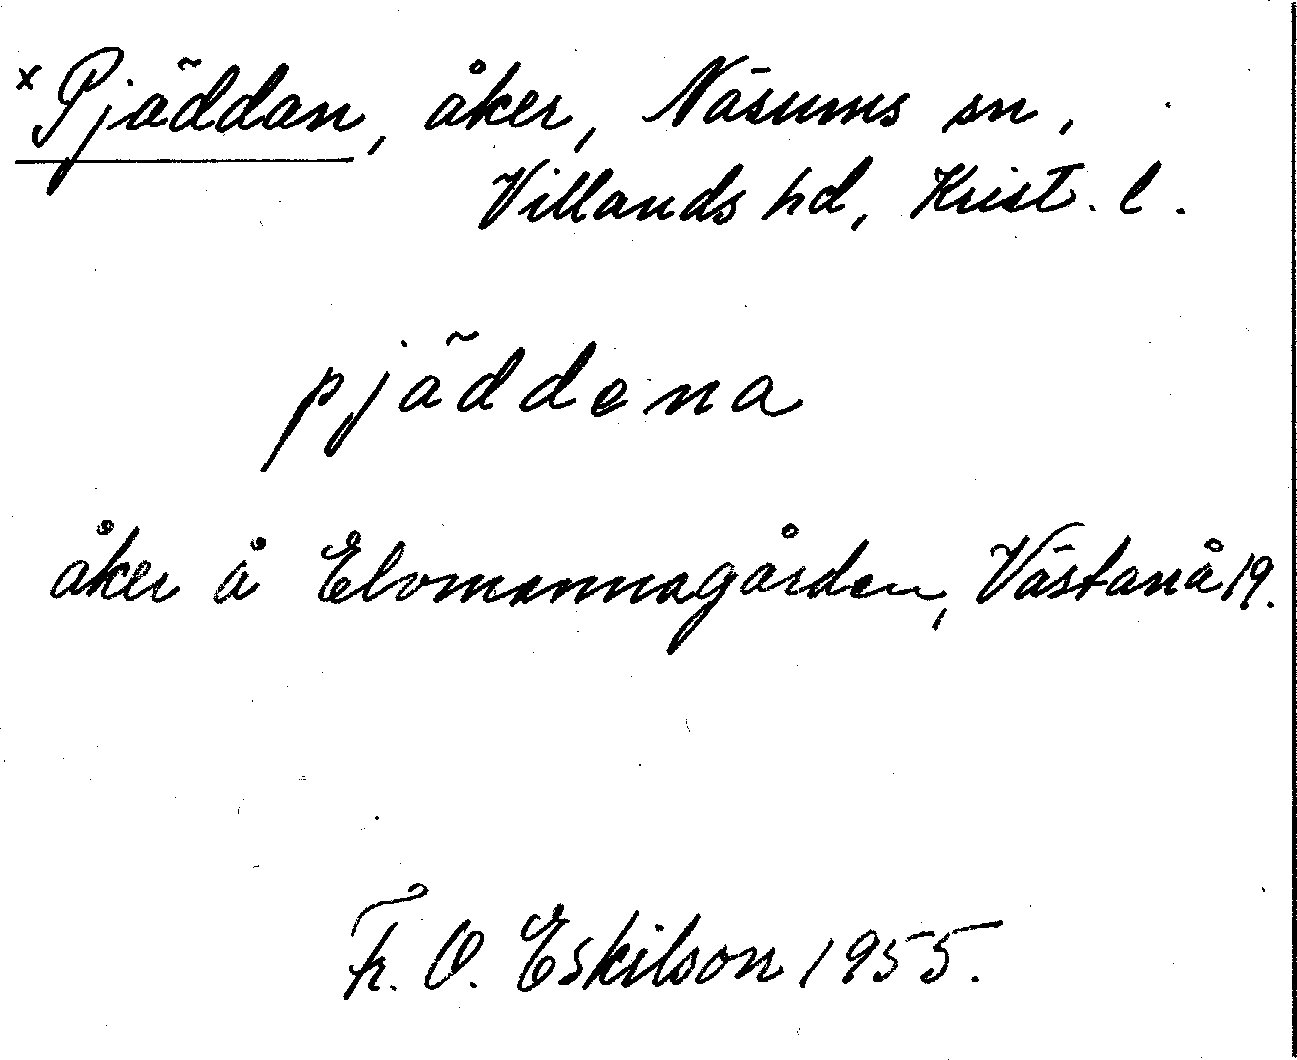 x Pjäddan, åker, Näsums sn,
Villands hd, Krist. l.
pjäddena
åker å Elvomannagården, Västanå 19.
Fr. O. Eskilson 1955.